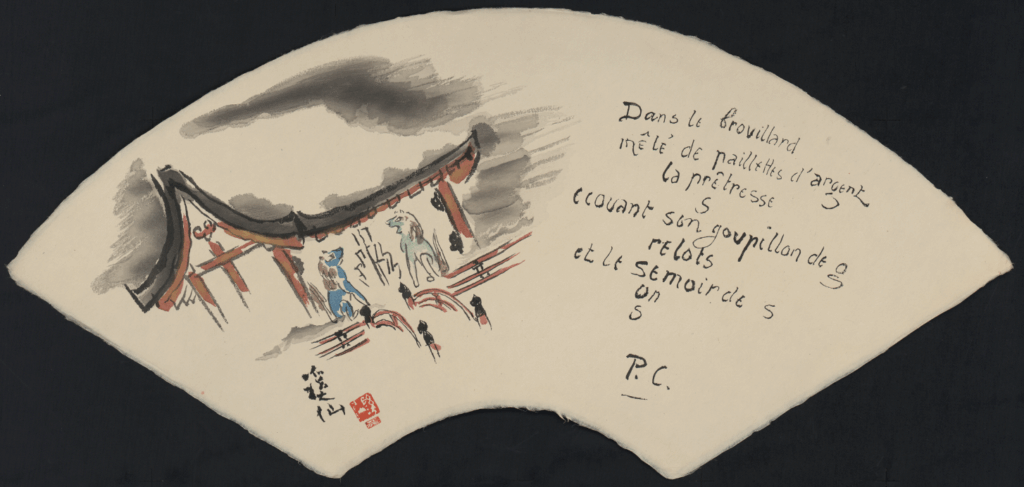 Dans le brouillard
mêlé de paillettes d'argent
la prêtresse
s
ecouant son goupillon de g
relots
et le semoir de s
on
s
P. C.
溪仙